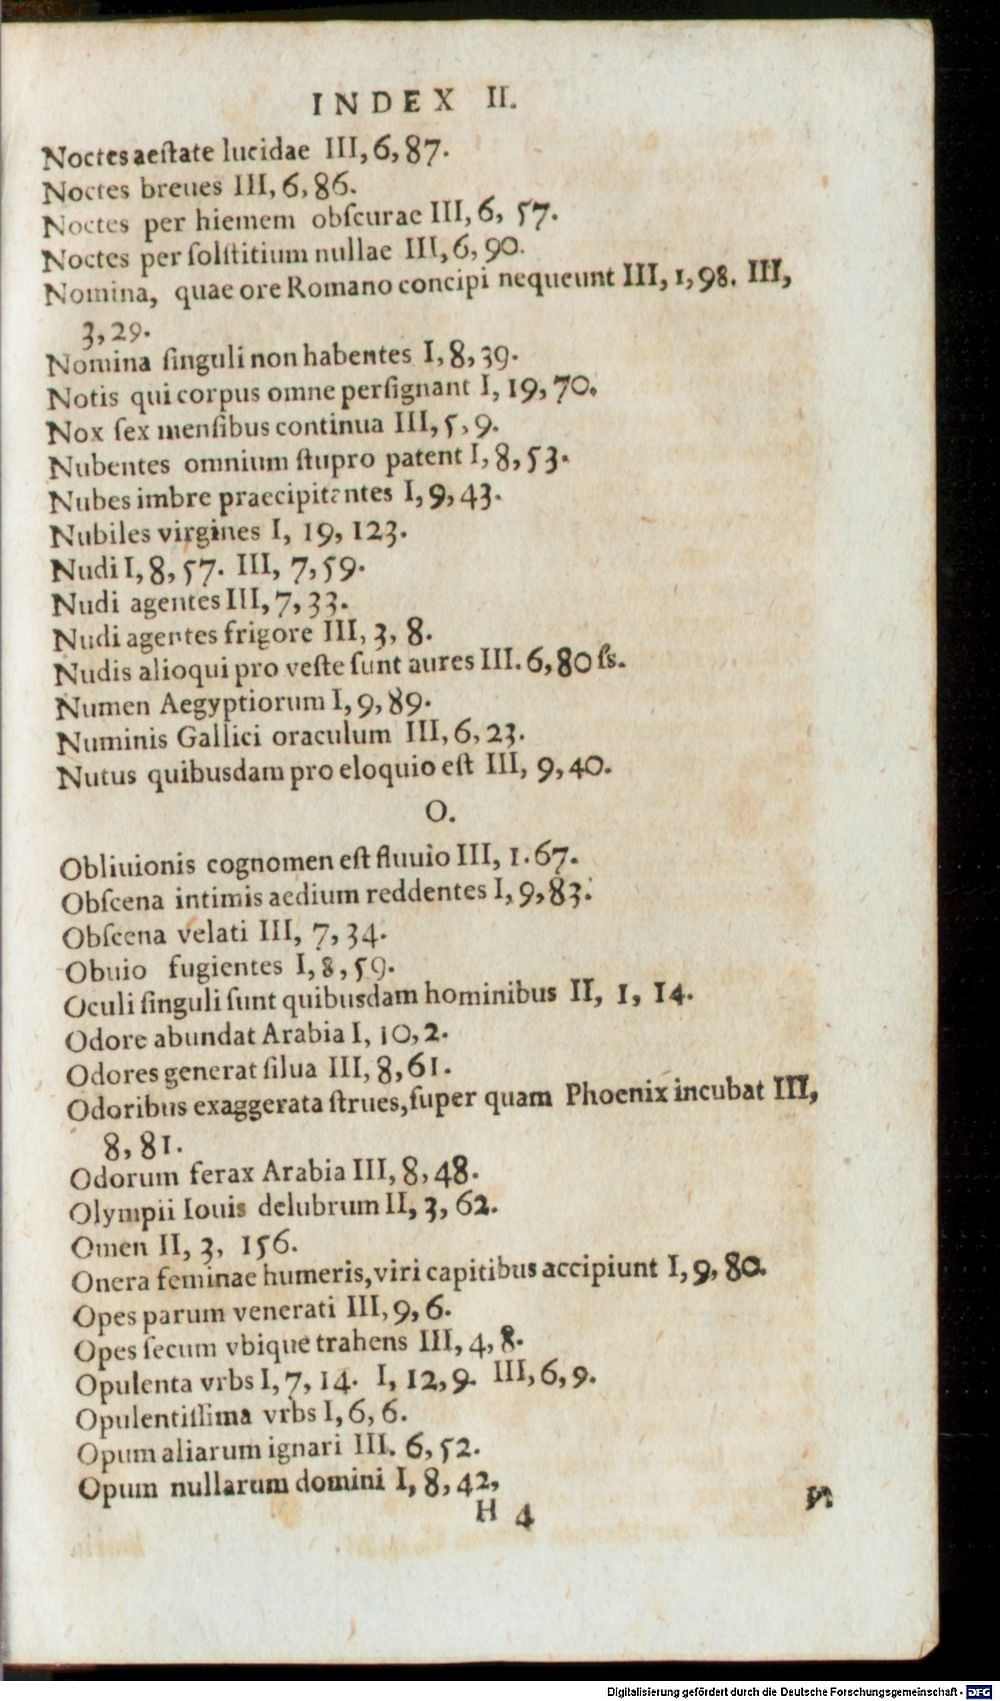 INDEX II.
Noctes aeſtate lucidae III, 6, 87.
Noctes breues III, 6, 86.
Noctes per hiemem obſcurae III, 6, 57.
Noctes per ſolſtitium nullae III, 6, 90.
Nomina, quae ore Romano concipi nequeunt III, 1, 98. III,
3, 29.
Nomina ſinguli non habentes I, 8, 39.
Notis qui corpus omne perſignant I, 19, 70.
Nox ſex menſibus continua III, 5, 9.
Nubentes omnium ſtupro patent I, 8, 53.
Nubes imbre praecipitantes I, 9, 43.
Nubiles virgines I, 19, 123.
Nudi I, 8, 57. III, 7, 59.
Nudi agentes III, 7, 33.
Nudi agentes frigore III, 3, 8.
Nudis alioqui pro veſte ſunt aures III. 6, 80 ſs.
Numen Aegyptiorum I, 9, 89.
Numinis Gallici oraculum III, 6, 23.
Nutus quibusdam pro eloquio eſt III, 9, 40.
O.
Obliuionis cognomen eſt fluuio III, 1. 67.
Obſcena intimis aedium reddentes I, 9, 83.
Obſcena velati III, 7, 34.
Obuio fugientes I, 8, 59.
Oculi ſinguli ſunt quibusdam hominibus II, 1, 14.
Odore abundat Arabia I, 10, 2.
Odores generat ſilua III, 8, 61.
Odoribus exaggerata ſtrues, ſuper quam Phoenix incubat III,
8, 81.
Odorum ferax Arabia III, 8, 48.
Olympii Iouis delubrum II, 3, 62.
Omen II, 3, 156.
Onera feminae humeris, viri capitibus accipiunt I, 9, 80.
Opes parum venerati III, 9, 6.
Opes ſecum vbique trahens III, 4, 8.
Opulenta vrbs I, 7, 14. I, 12, 9. III, 6, 9.
Opulentiſſima vrbs I, 6, 6.
Opum aliarum ignari III. 6, 52.
Opum nullarum domini I, 8, 42,
H 4
Digitalisierung gefördert durch die Deutsche Forschungsgemeinschaft - DFG